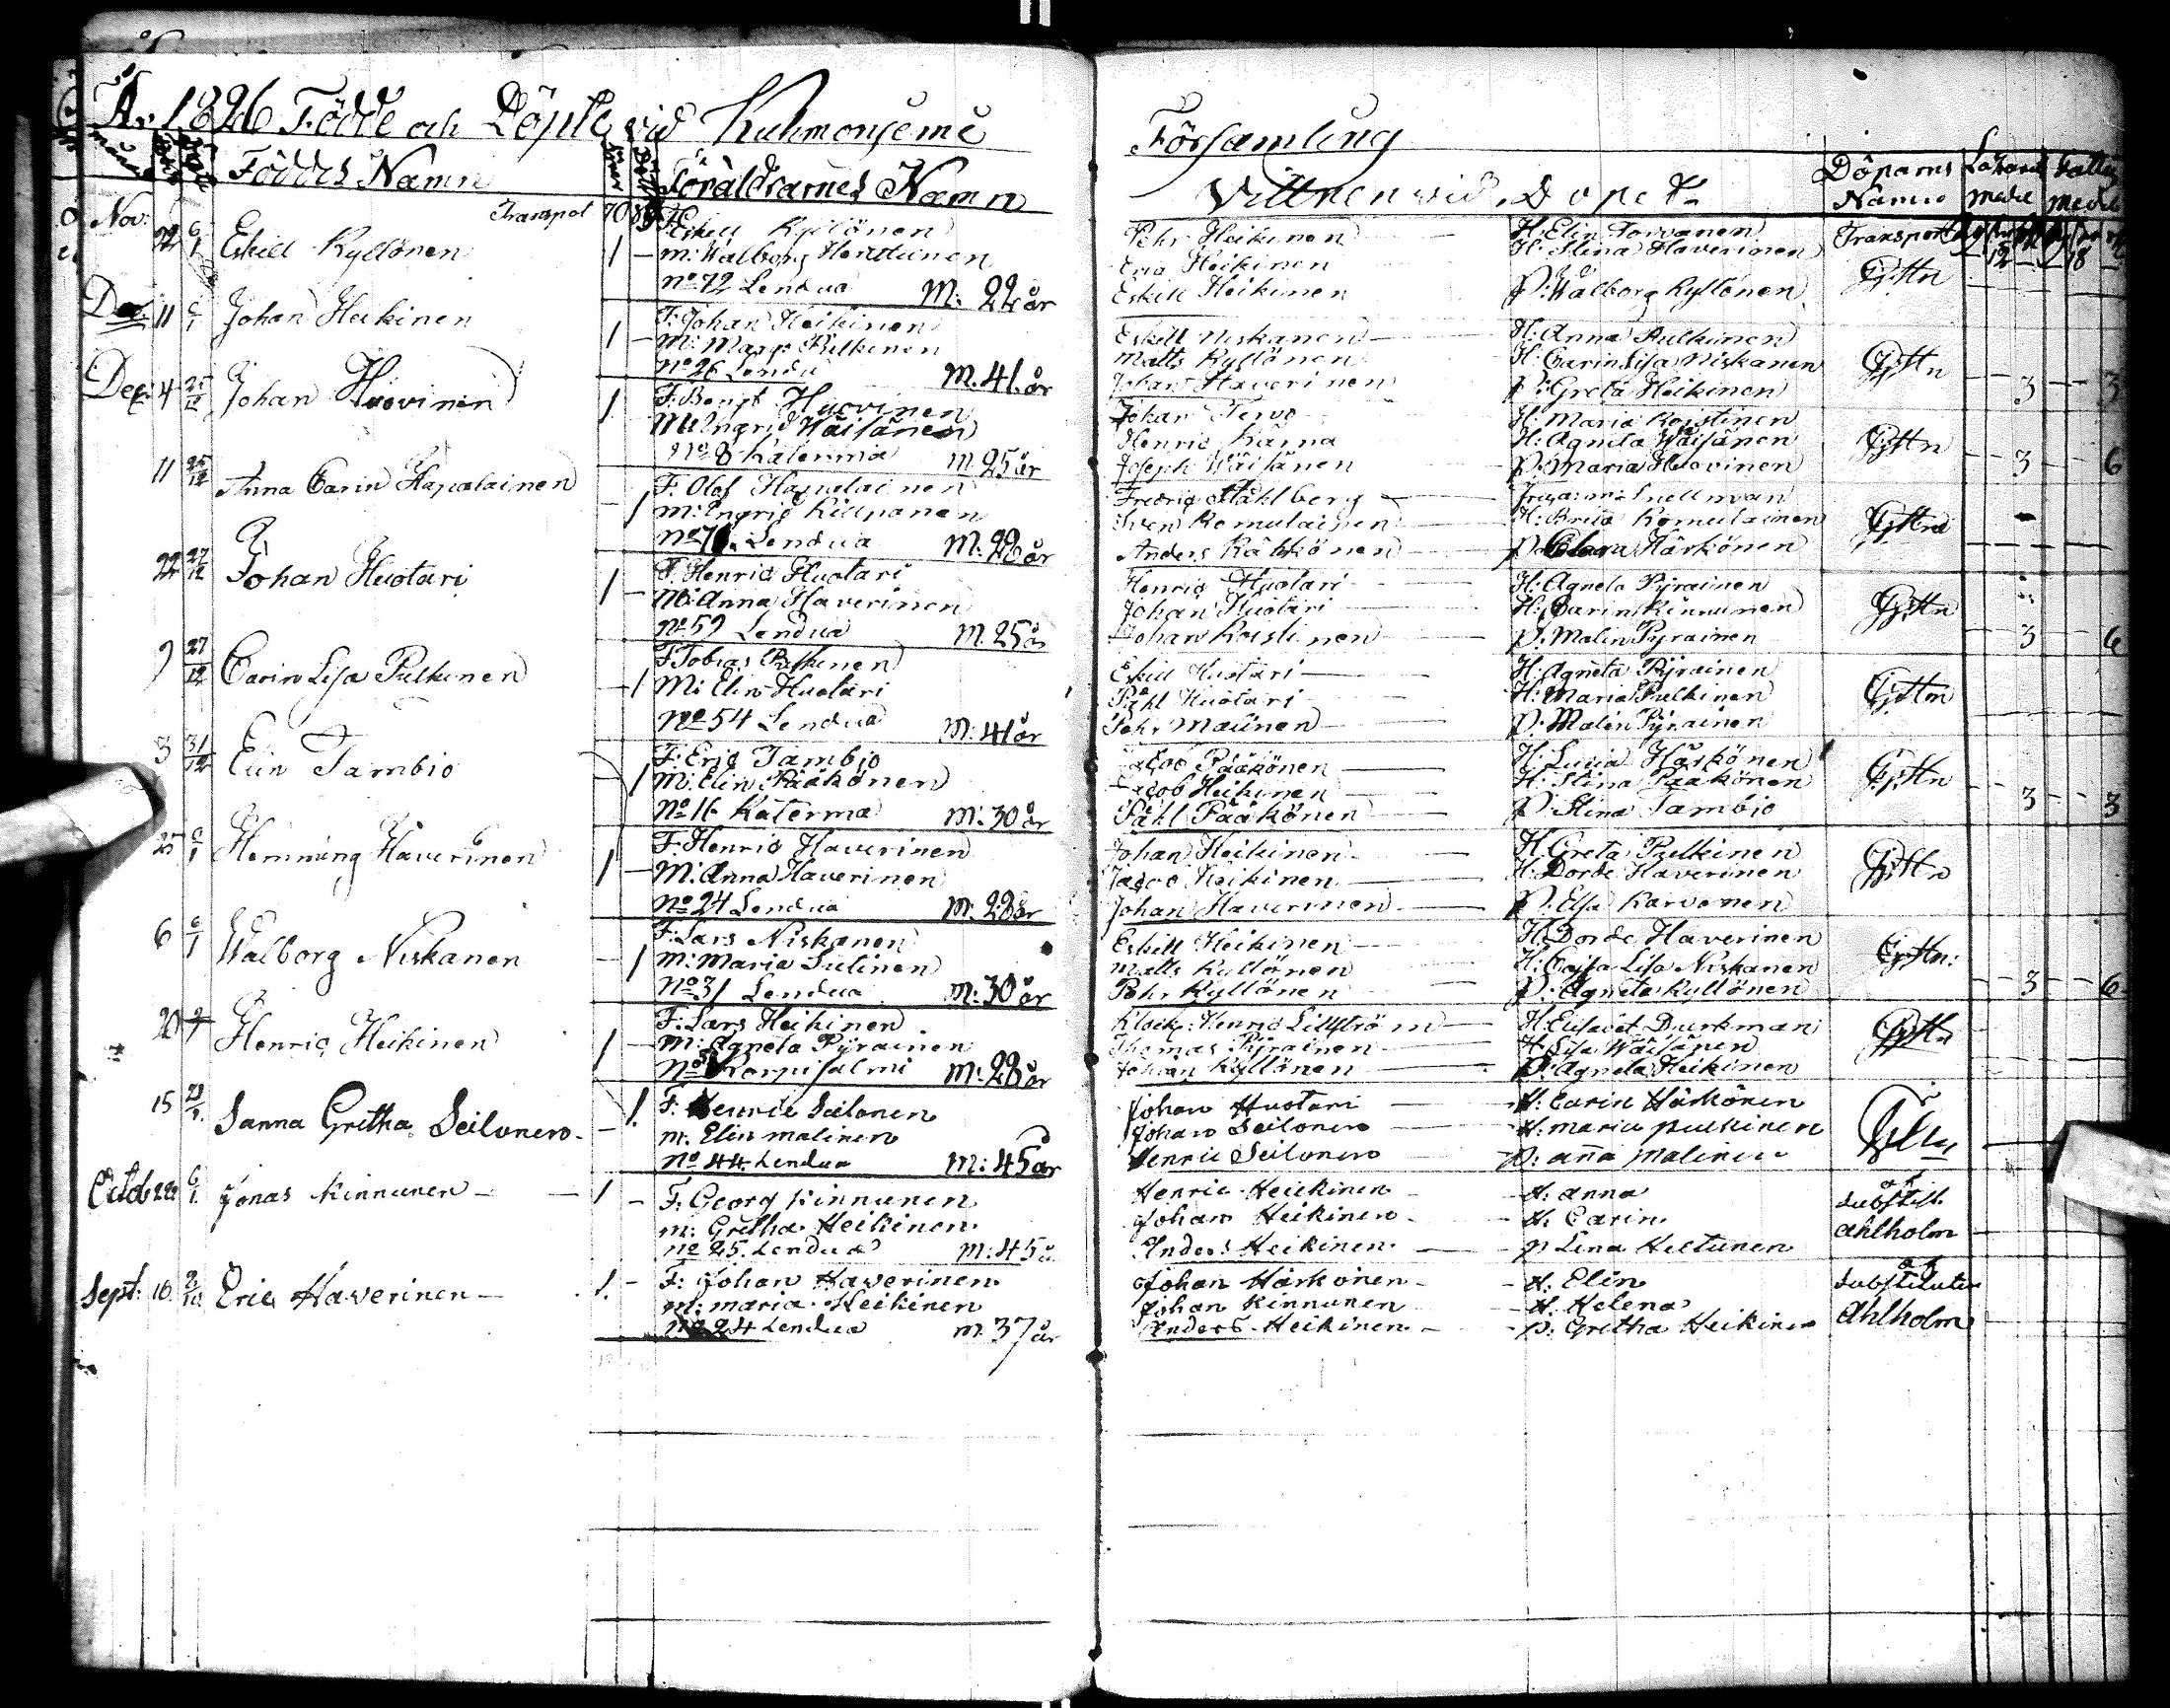 År 1826 Födde och Döpte vid Kuhmoniemi
Församling
Föddes Namn
Föräldrarnes Namn
Vittnen vid Dopet
Döparns Namn
Transpot 70
Transport
Nov: 22 6/1 Eskill Kyllönen 1 –
F: Eskill Kyllönen
m: Walborg
No 72 Lendua M: 22 år
Pehr Heikinen H: Elin
Eric Heikinen H: Stina Haverinen
Eskill Heikinen P: Walborg Kyllönen
Dec: 11 6/1 Johan Heikinen 1 –
F: Johan Heikinen
M: Marg: Pulkinen
No 26 Lendu M. 41. år
Eskill Niskanen H: Anna Pulkinen
Matts Kyllönen H: Carin Lisa Niskanen
Johan Haverinen P: Greta Heikinen
3 3
Dec: 4 25/12 Johan Huovinen 1
F: Bengt Huovinen
M: Ingrid Wäisänen
No 8 Katerma M. 25 år
Johan Tervo H: Maria Koistinen
Henric Kärna H: Agneta Wäisänen
Joseph Wäisänen P: Maria Huovinen
3 6
11 25/12 Anna Carin Hapalainen – 1
F: Olof Hapalainen
M: Ingrid Kilpanen
Lendua M: 26 år
Fredric Ståhlberg Snellman
Sven Romulainen H: Brita Romulainen
Anders Härkönen P: Clara Härkönen
22 27/12 Johan Huotari 1 –
F: Henric Huotari
M: Anna Haverinen
No 59 Lendua M. 25 år
Henric Huotari H: Agneta Pyrainen
Johan Huotari H: Carin Kinnunen
Johan Koistinen P: Malin Pyrainen
3 6
9 27/12 Carin Lisa Pulkinen – 1
F: Tobias Pulkinen
M: Elin Huotari
No 54 Lendua M: 41 år
Eskill Huotari H: Agneta Pyrainen
Påhl Huotari H: Maria Pulkinen
Pehr Malinen P: Malin Pyrainen
3 31/12 Elin Tambio 1
F: Eric Tambio
M: Elin Pääkönen
No 16 Katerma M: 30 år
Jacob Pääkönen H: Lucia Härkönen
Jacob Heikinen H: Stina Pääkönen
Påhl Pääkönen P: Stina Tambio
3 3
25 6/1 Hemming Haverinen 1 –
F: Henric Haverinen
M: Anna Haverinen
No 24 Lendua M: 28 år
Johan Heikinen H: Greta Pulkinen
Jacob Heikinen H: Dorde Haverinen
Johan Haverinen P: Elsa Karvonen
6 6/1 Walborg Niskanen – 1
F: Lars Niskanen
M: Maria Julinen
No 31 Lendua M: 30 år
Eskill Heikinen H: Dorde Haverinen
Matts Kyllönen H: Cajsa Lisa Niskanen
Pehr Kyllönen P: Agneta Kyllönen
3 6
20 Henric Heikinen 1 –
F: Lars Heikinen
M: Agneta Pyrainen
No Korpisalmi M: 28 år
Klock: Henric Lillström H: Elisabet Durkman
Thomas Pyrainen H: Lisa Wäisänen
Johan Kyllönen P: Agneta Heikinen
15 Sanna Gretha Seilonen – 1.
F: Henric Seilonen
m. Elin Malinen
No 44 Lendua M: 45 år
Johan Huotari H: Carin Härkönen
Johan Seilonen H: Maria Pulkinen
Henric Seilonen P: Anna Malinen
Octob 22 6/1 Jonas Kinnunen – 1 –
F: Georg Kinnunen
m: Gretha Heikinen
No 25. Lendua M: 45 å
Henric Heikinen H: Anna
Johan Heikinen H. Carin
Anders Heikinen P Lina Heltunen
af Substit. Ahlholm
Sept: 10 2/10 Eric Haverinen – 1. –
F: Johan Haverinen
m: Maria Heikinen
No 24 Lendua M. 37 år
Johan Härkönen H. Elin
Johan Kinnunen H. Helena
Anders Heikinen P: Gretha Heikinen
af Substituten Ahlholm